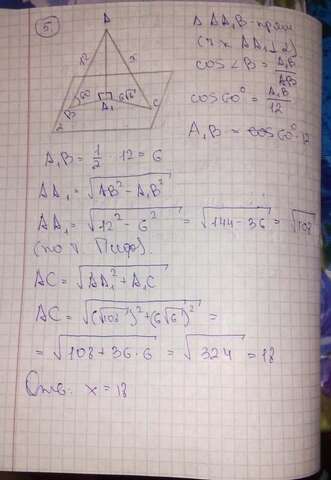 5)
A
12
x
60°
6√6
B
A₁
C
α
Δ AA₁B - прям
(т.к AA₁⊥α)
cos∠B = A₁B/AB
cos60° = A₁B/12
A₁B = cos60°·12
A₁B = 1/2 · 12 = 6
AA₁ = √(AB² - A₁B²)
AA₁ = √(12² - 6²) = √(144 - 36) = √108
(по т. Пифа).
AC = √(AA₁² + A₁C)
AC = √((√108)² + (6√6)²) =
= √(108 + 36·6) = √324 = 18
Отв. x = 18